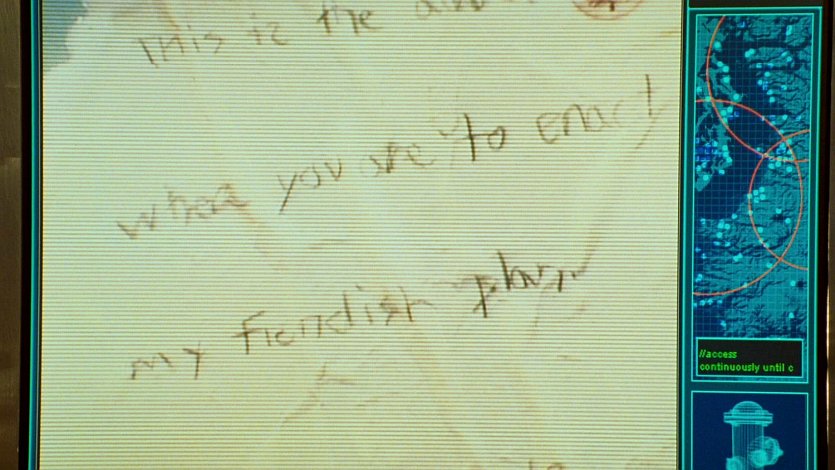 This is the
where you are to enact
my fiendish plan
//access
continuously until c